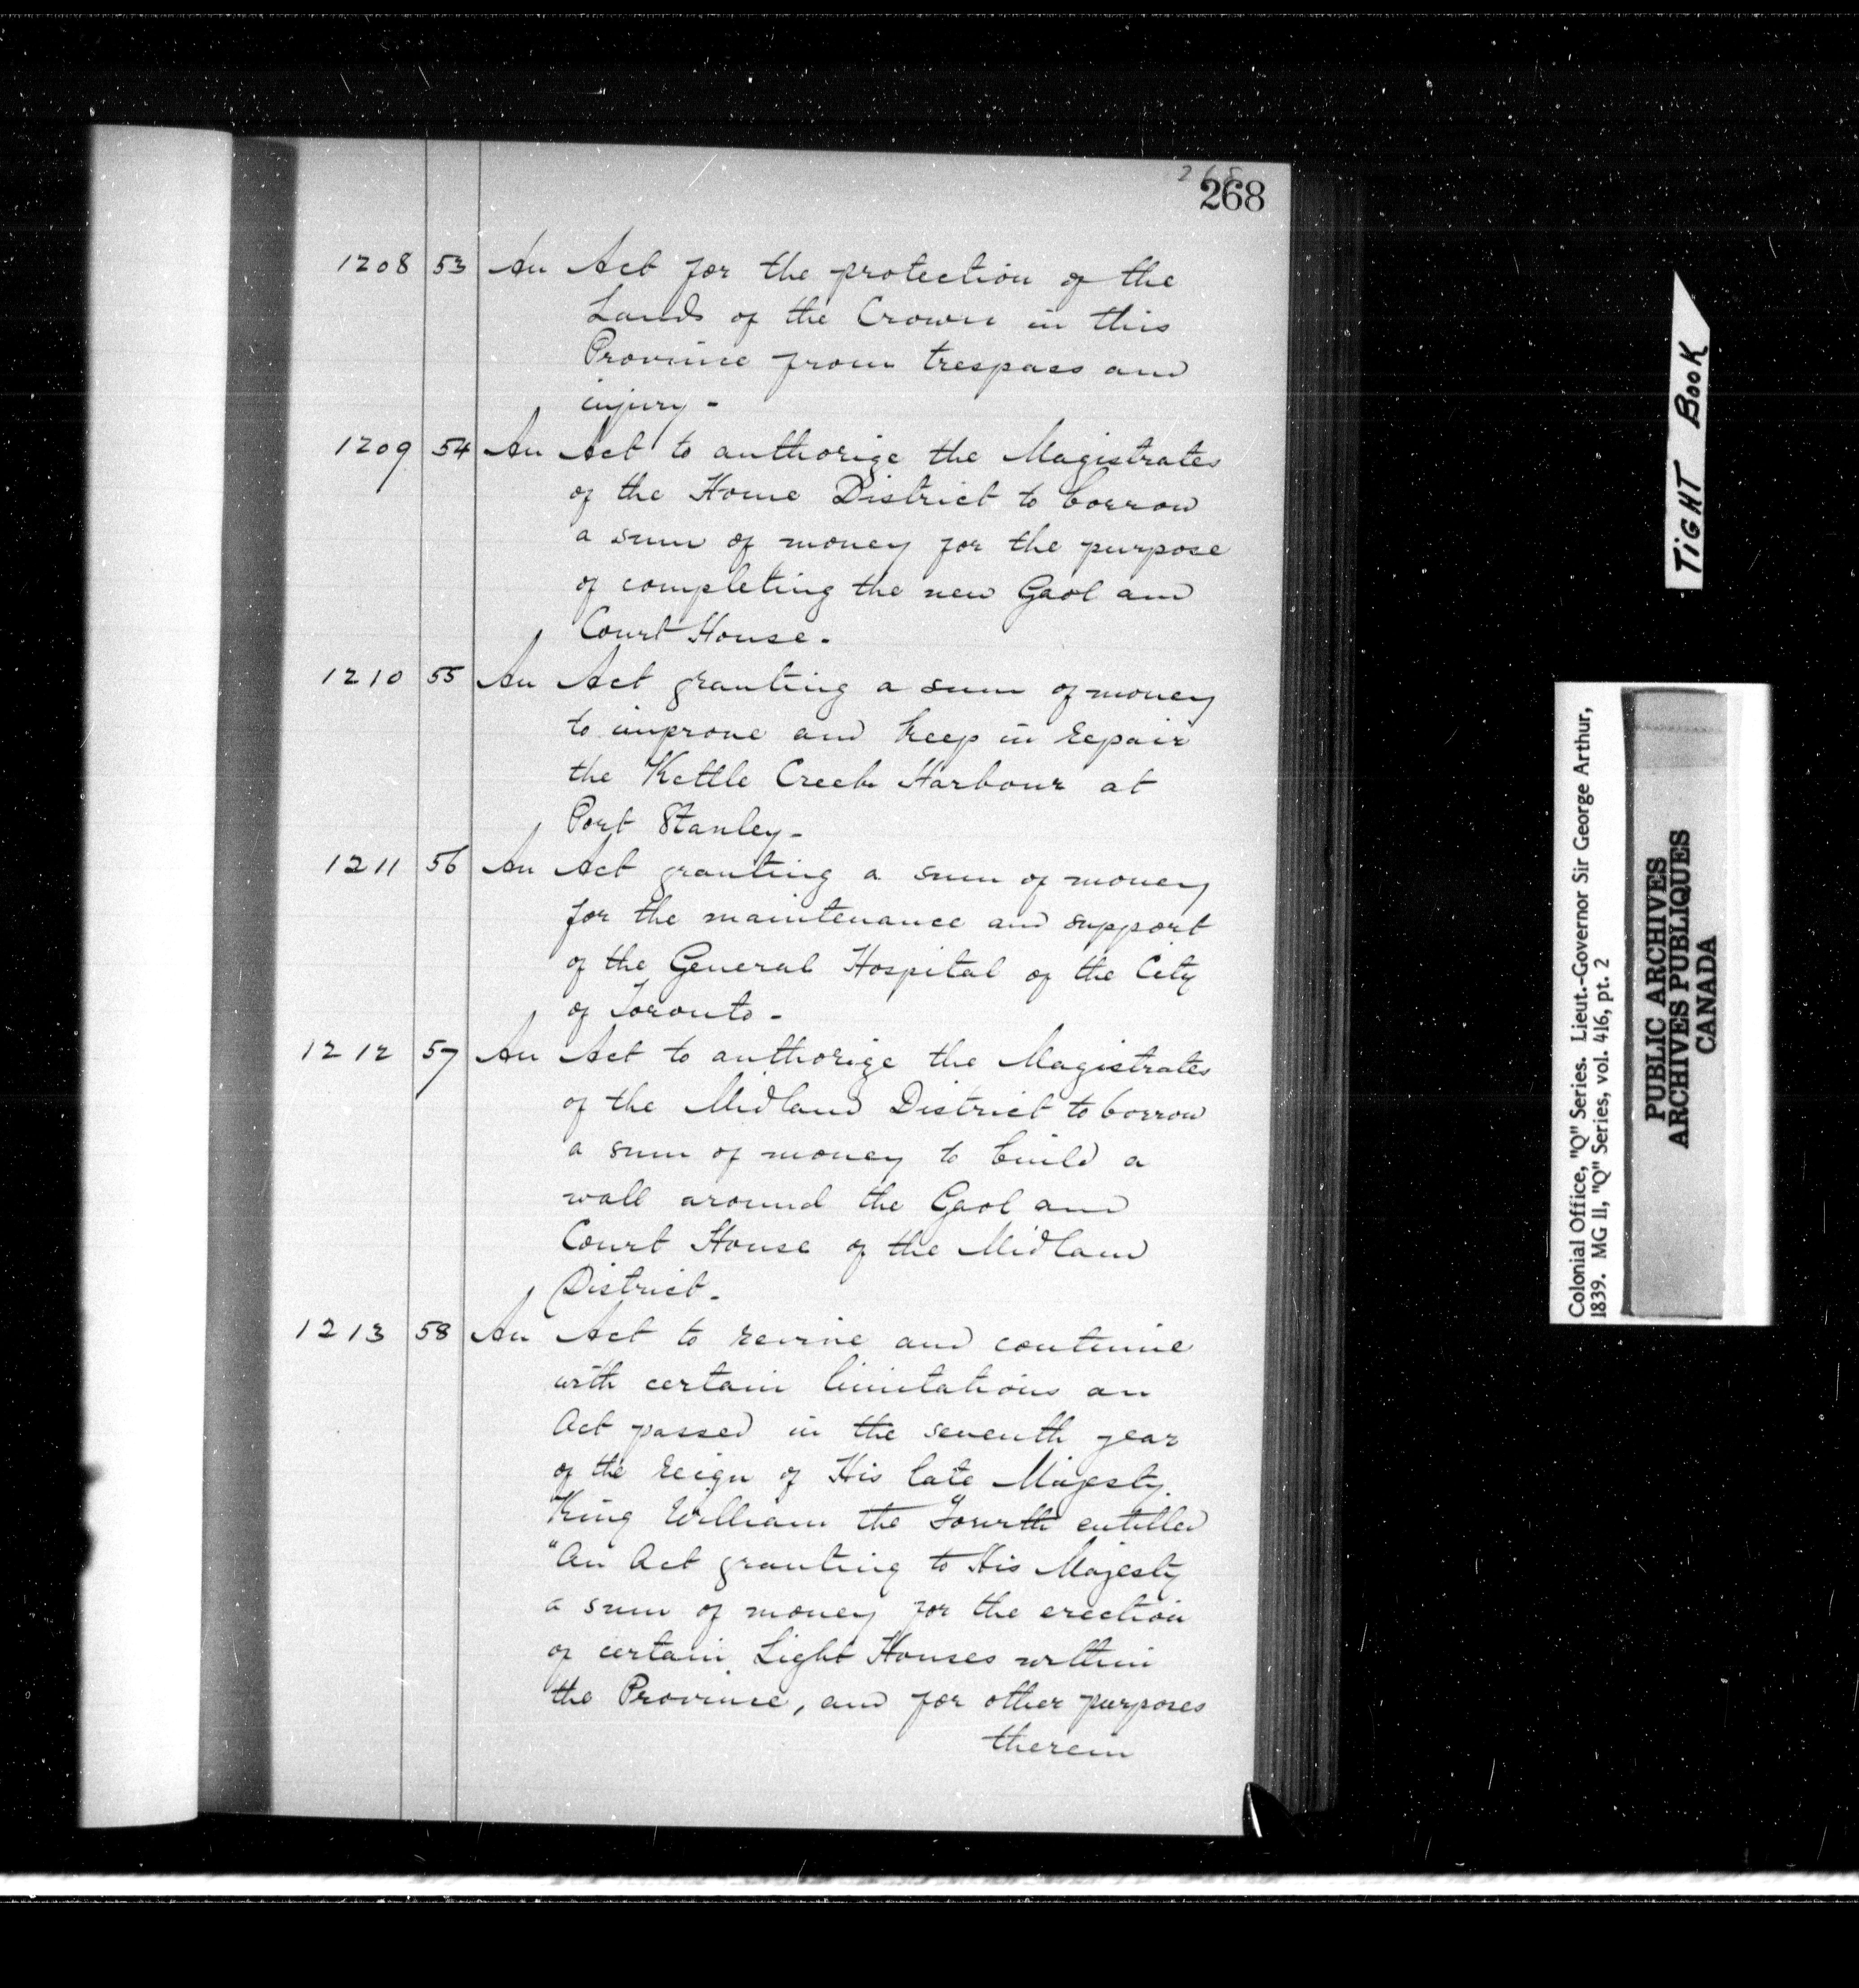 268
268
1208 53 An Act for the protection of the
Lands of the Crown in this
Province from trespass and
injury -
1209 54 An Act to authorize the Magistrates
of the Home District to borrow
a sum of money for the purpose
of completing the new Gaol and
Court House -
1210 55 An Act granting a sum of money
to improve and keep in repair
the Kettle Creek Harbour at
Port Stanley -
1211 56 An Act granting a sum of money
for the maintenance and support
of the General Hospital of the City
of Toronto -
1212 57 An Act to authorize the Magistrates
of the Midland District to borrow
a sum of money to build a
wall around the Gaol and
Court House of the Midland
District -
1213 58 An Act to revive and continue
with certain limitations an
Act passed in the seventh year
of the reign of His late Majesty
King William the Fourth entitled
"An Act granting to His Majesty
a sum of money for the erection
of certain Light Houses within
the Province, and for other purposes
therein
TIGHT BOOK
Colonial Office, "Q" Series. Lieut.-Governor Sir George Arthur,
1839. MG 11, "Q" Series, vol. 416, pt. 2
PUBLIC ARCHIVES
ARCHIVES PUBLIQUES
CANADA